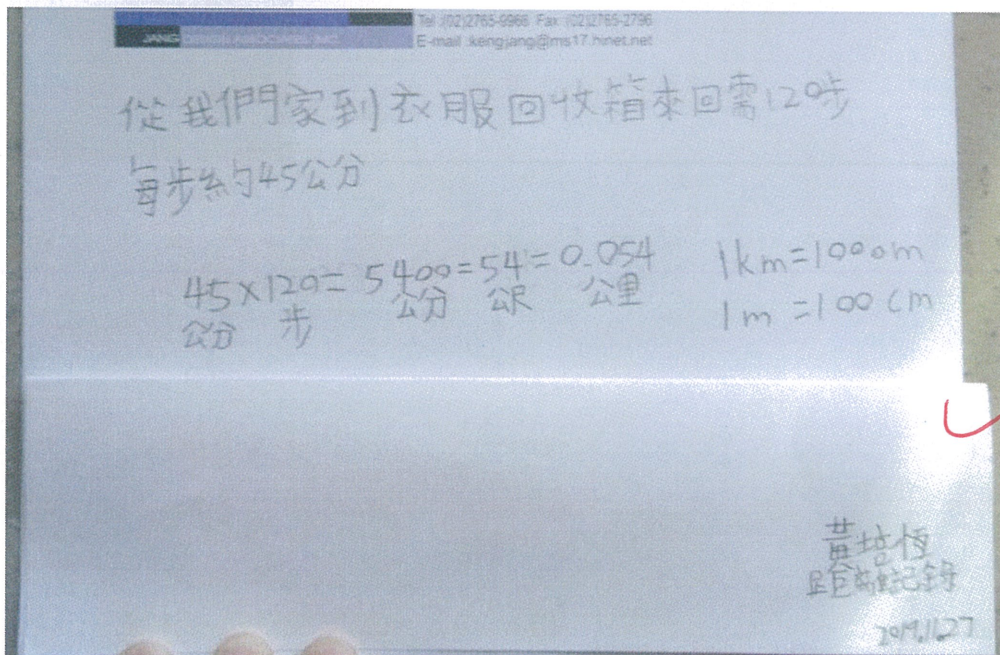 Tel :(02)2765-9966 Fax :(02)2765-2796
E-mail :kengjang@ms17.hinet.net
從我們家到衣服回收箱來回需120步
每步約45公分
45×120=5400=54=0.054
公分 步 公分 公尺 公里
1km=1000m
1m=100cm
黃培恆
距離記錄
2019.11.27